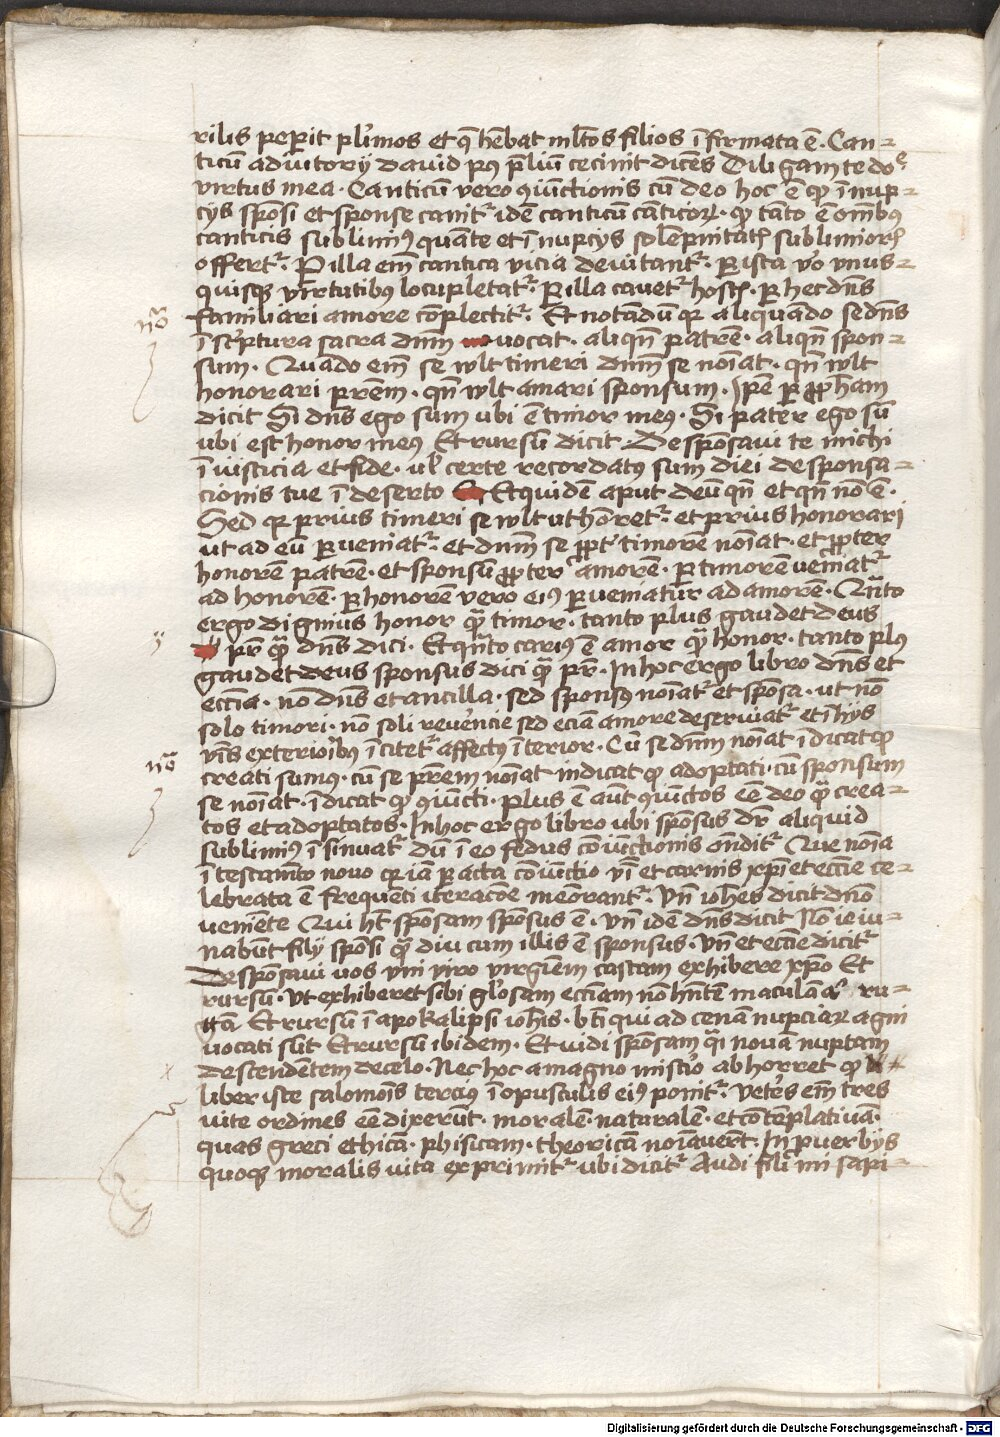 rilis peperit pl'imos et q̄ hēbat ml̅tos filios īfirmata ē. Can-
ticū adiutorij dauid p9 p̄liū cecinit dicēs Diligam te dōe
virtus mea. Canticū vero 9iūctionis cū deo hoc ē qp ī nup-
cijs spōsi et sponse canit᷑ idē canticū cāticoꝝ. qp tāto ē om̄ibꝯ
canticis sublimiꝯ quāte et ī nupcijs solēpnitat᷑ sublimior᷑
offert᷑. P illa em̄ cantica vicia deuitant᷑. P ista vo vnus-
quisqꝫ virtutibꝯ locupletat᷑. P illa cauet᷑ host᷑. p hec dn̄s
familiari amore cōplectit᷑. Et notādū qꝛ aliquando se dn̄s
nō
ī scptura sacra dnm̄ uocat. aliqn̄ patrē. aliqn̄ spon-
sum. Quādo em̄ se wlt timeri dnm̄ se noīat. qn̄ wlt
honorari pr̄em. qn̄ wlt amari sponsum. Ipē p ꝓpham
dicit Si dn̄s ego sum ubi ē timor meꝯ. Si pater ego sū
ubi est honor meꝯ Et rursū dicit. Desponsaui te michi
ī iusticia et fide. ul' certe recordatꝯ sum diei desponsa-
cionis tue ī deserto Et quidē aput deū qn̄ et qn̄ nō ē.
Sed qꝛ prius timeri se wlt ut hōret᷑. et prius honorari
ut ad eū pueniat᷑. et dnm̄ se ꝓpt' timorē noīat. et ꝓpter
honorē patrē. et sponsū ꝓpter amorē. p timorē veniat᷑
ad honorē. p honorē vero eiꝯ perueniatur ad amorē. Qn̄to
ergo dignius honor quā timor. tanto plus gaudet deus
pr̄ quā dn̄s dici. Et qn̄to cariꝯ ē amor quā honor. tanto plꝯ
gaudet deus sponsus dici quā pr̄. In hoc ergo libro dn̄s et
eccīa. nō dn̄s et ancilla. sed sponsꝯ noīat᷑ et spōsa. ut nō
solo timori. nō soli reuēncie sed eciā amore deseruiat᷑ et ī hijs
v̄bis exterioībꝯ īcitet᷑ affectꝯ īterior. Cū se dnm̄ noīat īdicat qp
nō
creati sumꝯ. cū se pr̄em noīat indicat qp adoptati. cū sponsum
se noīat. īdicat qp 9iūcti. Plus ē aūt 9iūctos eē deo quā crea-
tos et adoptatos. In hoc ergo libro ubi spōsus dr̄ aliquid
sublimiꝯ īsinuat᷑ dū ī eo fedus cōiūctionis ōndit᷑ Que noīa
ī testamēto nouo qꝛ iā pacta cōiūctio v̄bi et carnis xpī et eccīe ce-
lebrata ē frequēti iteracōe meōrant᷑. Vn̄ ioh̄es dicit dn̄o
ueniēte Qui ht̄ spōsam spōsus ē. vn̄ idē dn̄s dicit Nō ieiu-
nabūt filij spōsi quā diu cum illis ē sponsus. vn̄ et eccīe dicit᷑
Despōsaui uos vni viro virginem castam exhibere xpo Et
rursū. Vt exhiberet sibi glōsam eccīam nō hn̄tē maculā a' ru-
gā Et rursū ī apokalipsi ioh̄is. btī qui ad cenā nupciaꝝ agni
uocati sūt Et rursū ibidem. Et uidi spōsam qī nouā nuptam
descendētem de celo. Nec hoc a magno misťio abhorret qp
liber iste salomōis terciꝯ ī opusculis eiꝯ ponit᷑. Vet'es em̄ tres
uite ordines eē dixerūt. moralē. naturalē. et cōtēplatiuā.
quas greci ethicā. phisicam. theoricā noīauert̄. In puerbijs
quoqꝫ moralis uita exprimit᷑ ubi dicit᷑ Audi fili mi sapi-